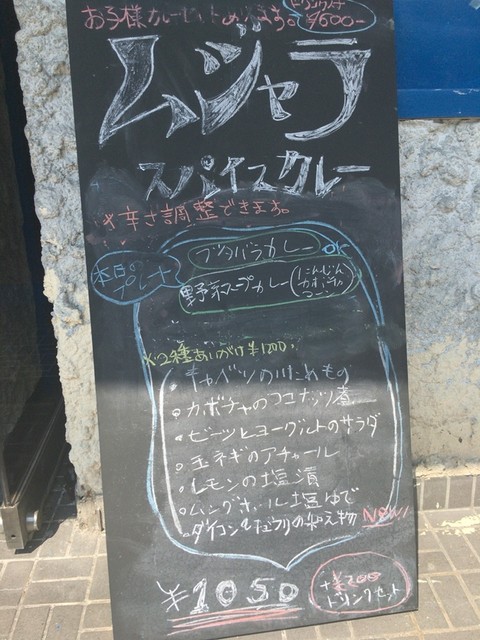 お子様カレーセットあります。
ドリンク付 ¥600-
ムジャラ
スパイスカレー
*辛さ調整できます。
本日のプレート
ブタバラカレー or
野菜スープカレー
※2種あいがけ¥1200.
キャベツの
カボチャのココナッツ煮
ビーツとヨーグルトのサラダ
玉ネギのアチャール
レモンの塩漬
ムングホール塩ゆで
ダイコン&キュウリの和え物 NEW!
¥1050
+¥200
ドリンクセット